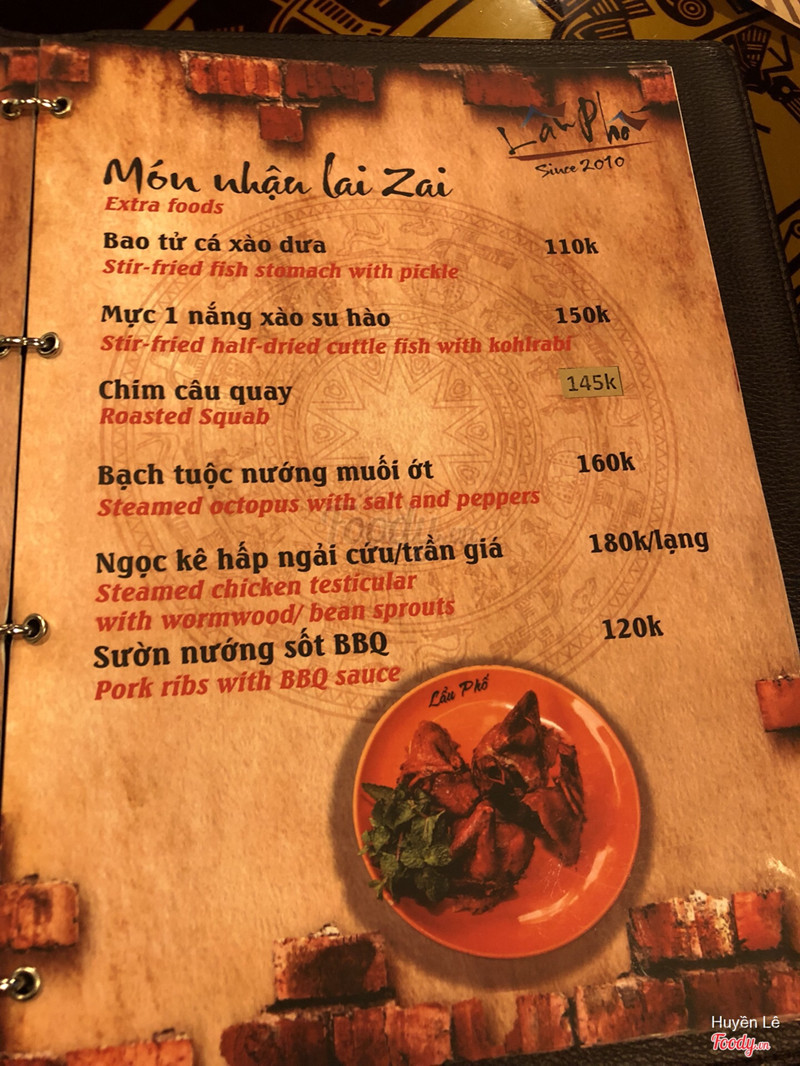 Lẩu Phố
Since 2010
Món nhậu lai Zai
Extra foods
Bao tử cá xào dưa 110k
Stir-fried fish stomach with pickle
Mực 1 nắng xào su hào 150k
Stir-fried half-dried cuttle fish with kohlrabi
Chim câu quay 145k
Roasted Squab
Bạch tuộc nướng muối ớt 160k
Steamed octopus with salt and peppers
Ngọc kê hấp ngải cứu/trần giá 180k/lạng
Steamed chicken testicular
with wormwood/ bean sprouts
Sườn nướng sốt BBQ 120k
Pork ribs with BBQ sauce
Lẩu Phố
Huyền Lê
Foody.vn